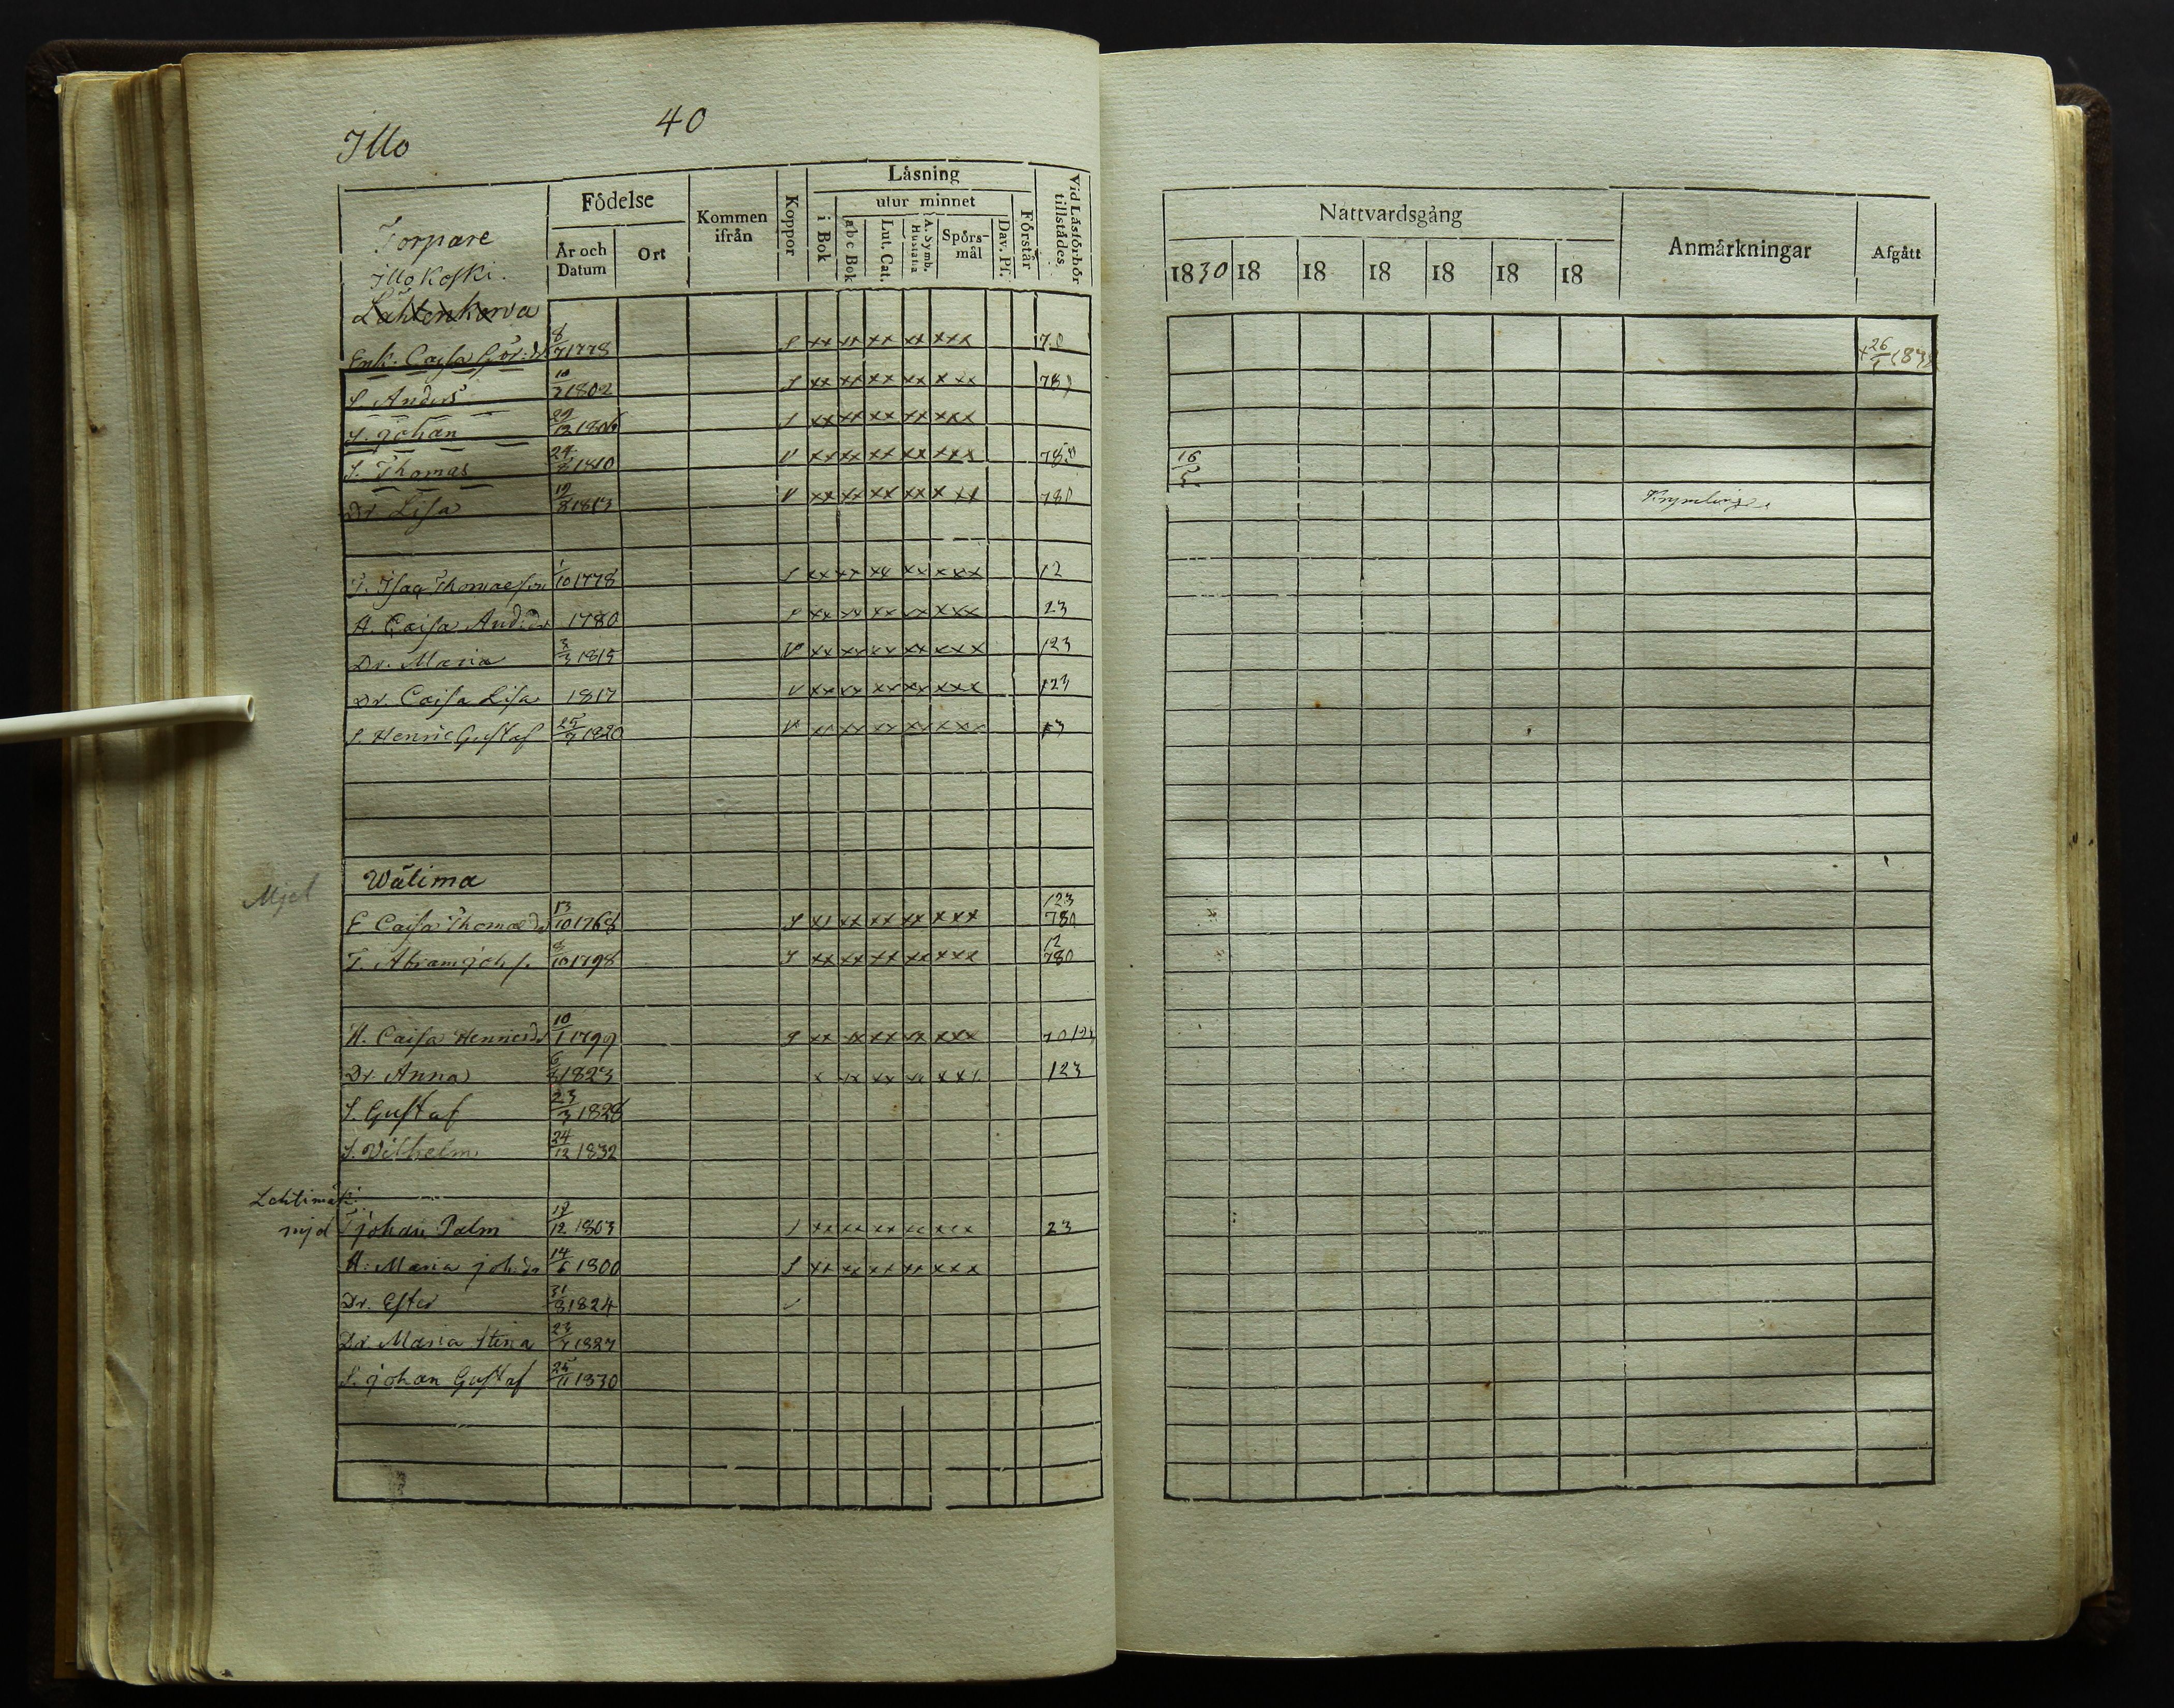 40
Illo
Torpare
Illokoski.
Lähtenkorva
Födelse
År och Datum
Ort
Kommen ifrån
Koppor
Läsning
i Bok
utur minnet
abc Bok
Lut. Cat.
A. Symb. Hustafla
Spörsmål
Dav. Ps.
Förstår
Vid Läsförhör tillstädes
Enk. Cajsa 8/7 1778 S xx xx xx xx xxx 7.0
S. Anders 10/2 1802 S xx xx xx xx xxx 78
S. Johan 29/12 1806 S xx xx xx xx xxx
S. Thomas 1810 V xx xx xx xx xxx 780
Dr Lisa 19/8 1813 V xx xx xx xx xxx 780
T. Isaq Thomasson 1/10 1778 S xx xx xx xx xxx 12
H. Caisa Andersdr 1780 S xx xx xx xx xxx 23
Dr. Maria 3/3 1815 V xx xx xx xx xxx 123
Dr. Caisa Lisa 1817 V xx xx xx xx xxx 123
S. Henric Gustaf 25/7 1820 V xx xx xx xx xxx 13
Mjel
Wälimä
E Caisa Thomasdr 13/10 1768 S xx xx xx xx xxx 123 780
T. Abram Joh s. 8/10 1798 S xx xx xx xx xxx 12 780
H. Caisa Hennicsdr 10/1 1799 S xx xx xx xx xxx
Dr. Anna 6/8 1823 x xx xx xx xxx 123
S. Gustaf 23/3 1828
S. Vilhelm 24/12 1832
Lehtimäki
mjel T Johan Palm 18/12 1803 S xx xx xx xx xxx 23
H: Maria Joh. dr 14/6 1800 S xx xx xx xx xxx
Dr. Ester 31/8 1824 v
Dr. Maria Stina 23/7 1827
S. Johan Gustaf 25/11 1830
Nattvardsgång
Anmärkningar
Afgått
1830 18 18 18 18 18 18
+ 26
16/5
Krympling